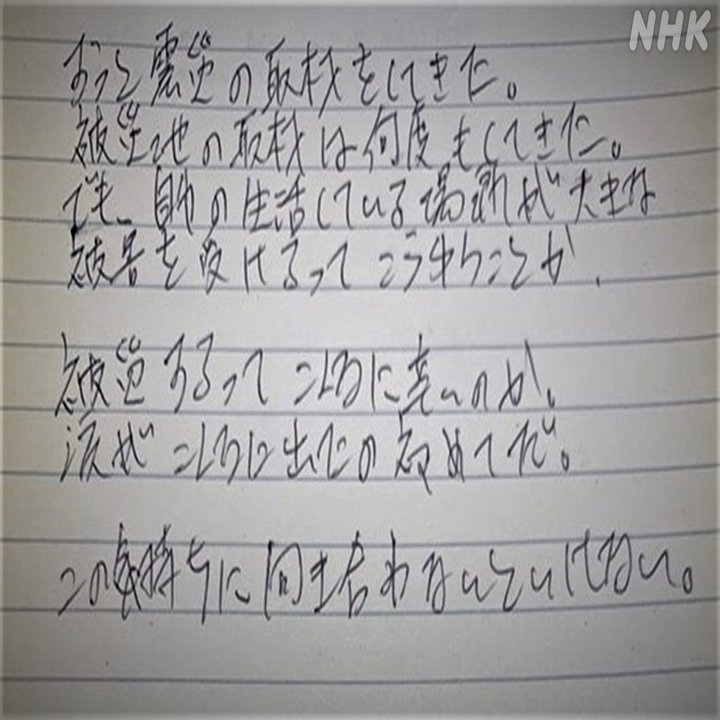 NHK
ずっと震災の取材をしてきた。
被災地の取材は何度もしてきた。
でも、自分の生活している場所が大きな
被害を受けるってこうゆうことか、
被災するってこんなに辛いのか、
涙がこんなに出たの初めてだ。
この気持ちに向き合わないといけない。